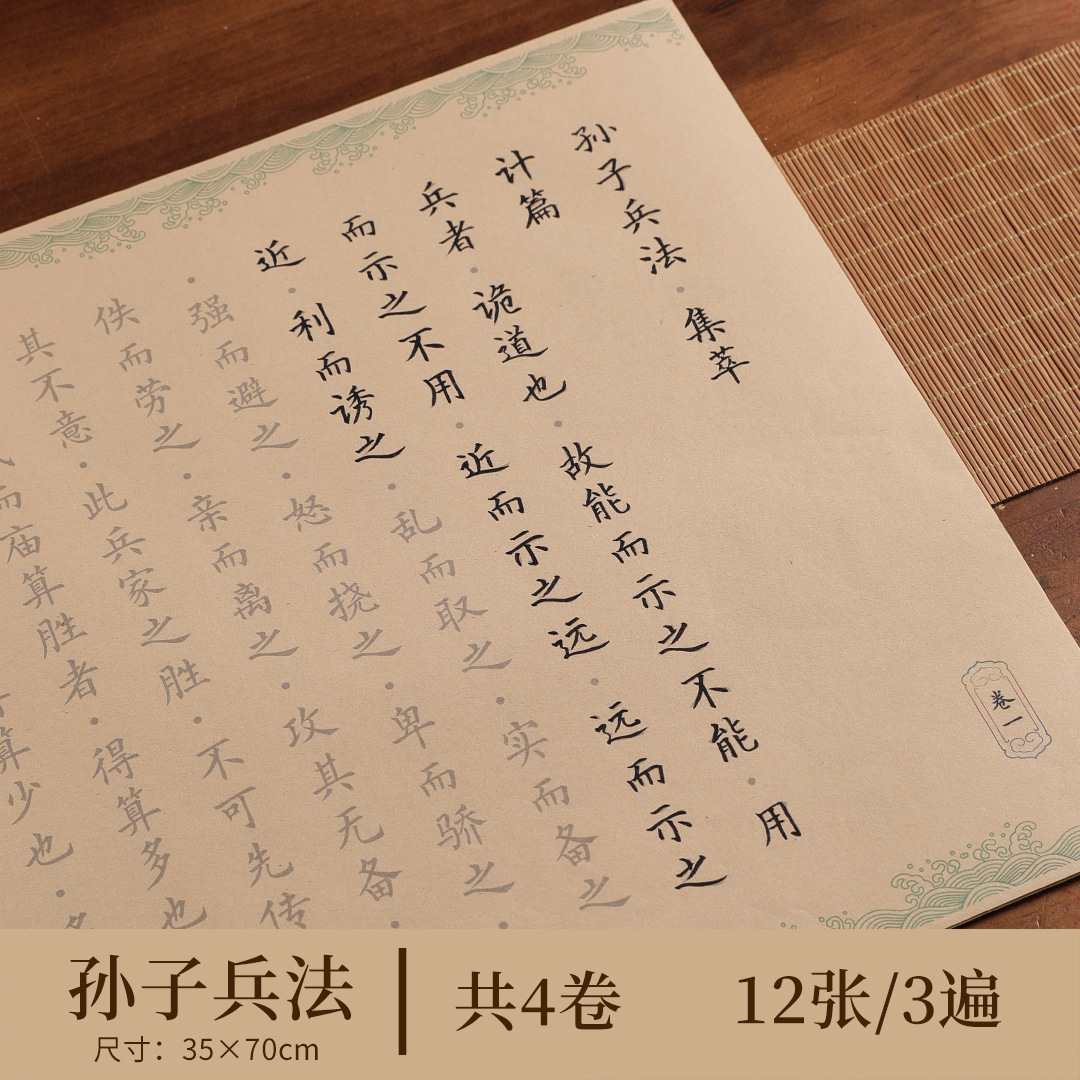 孙子兵法·集萃
计篇
兵者·诡道也·故能而示之不能·用
而示之不用·近而示之远·远而示之
近·利而诱之·乱而取之·实而备之
·强而避之·怒而挠之·卑而骄之·
佚而劳之·亲而离之·攻其无备·
其不意·此兵家之胜·不可先传
而庙算胜者·得算多也
算少也·
卷一
孙子兵法
尺寸：35×70cm
共4卷
12张/3遍